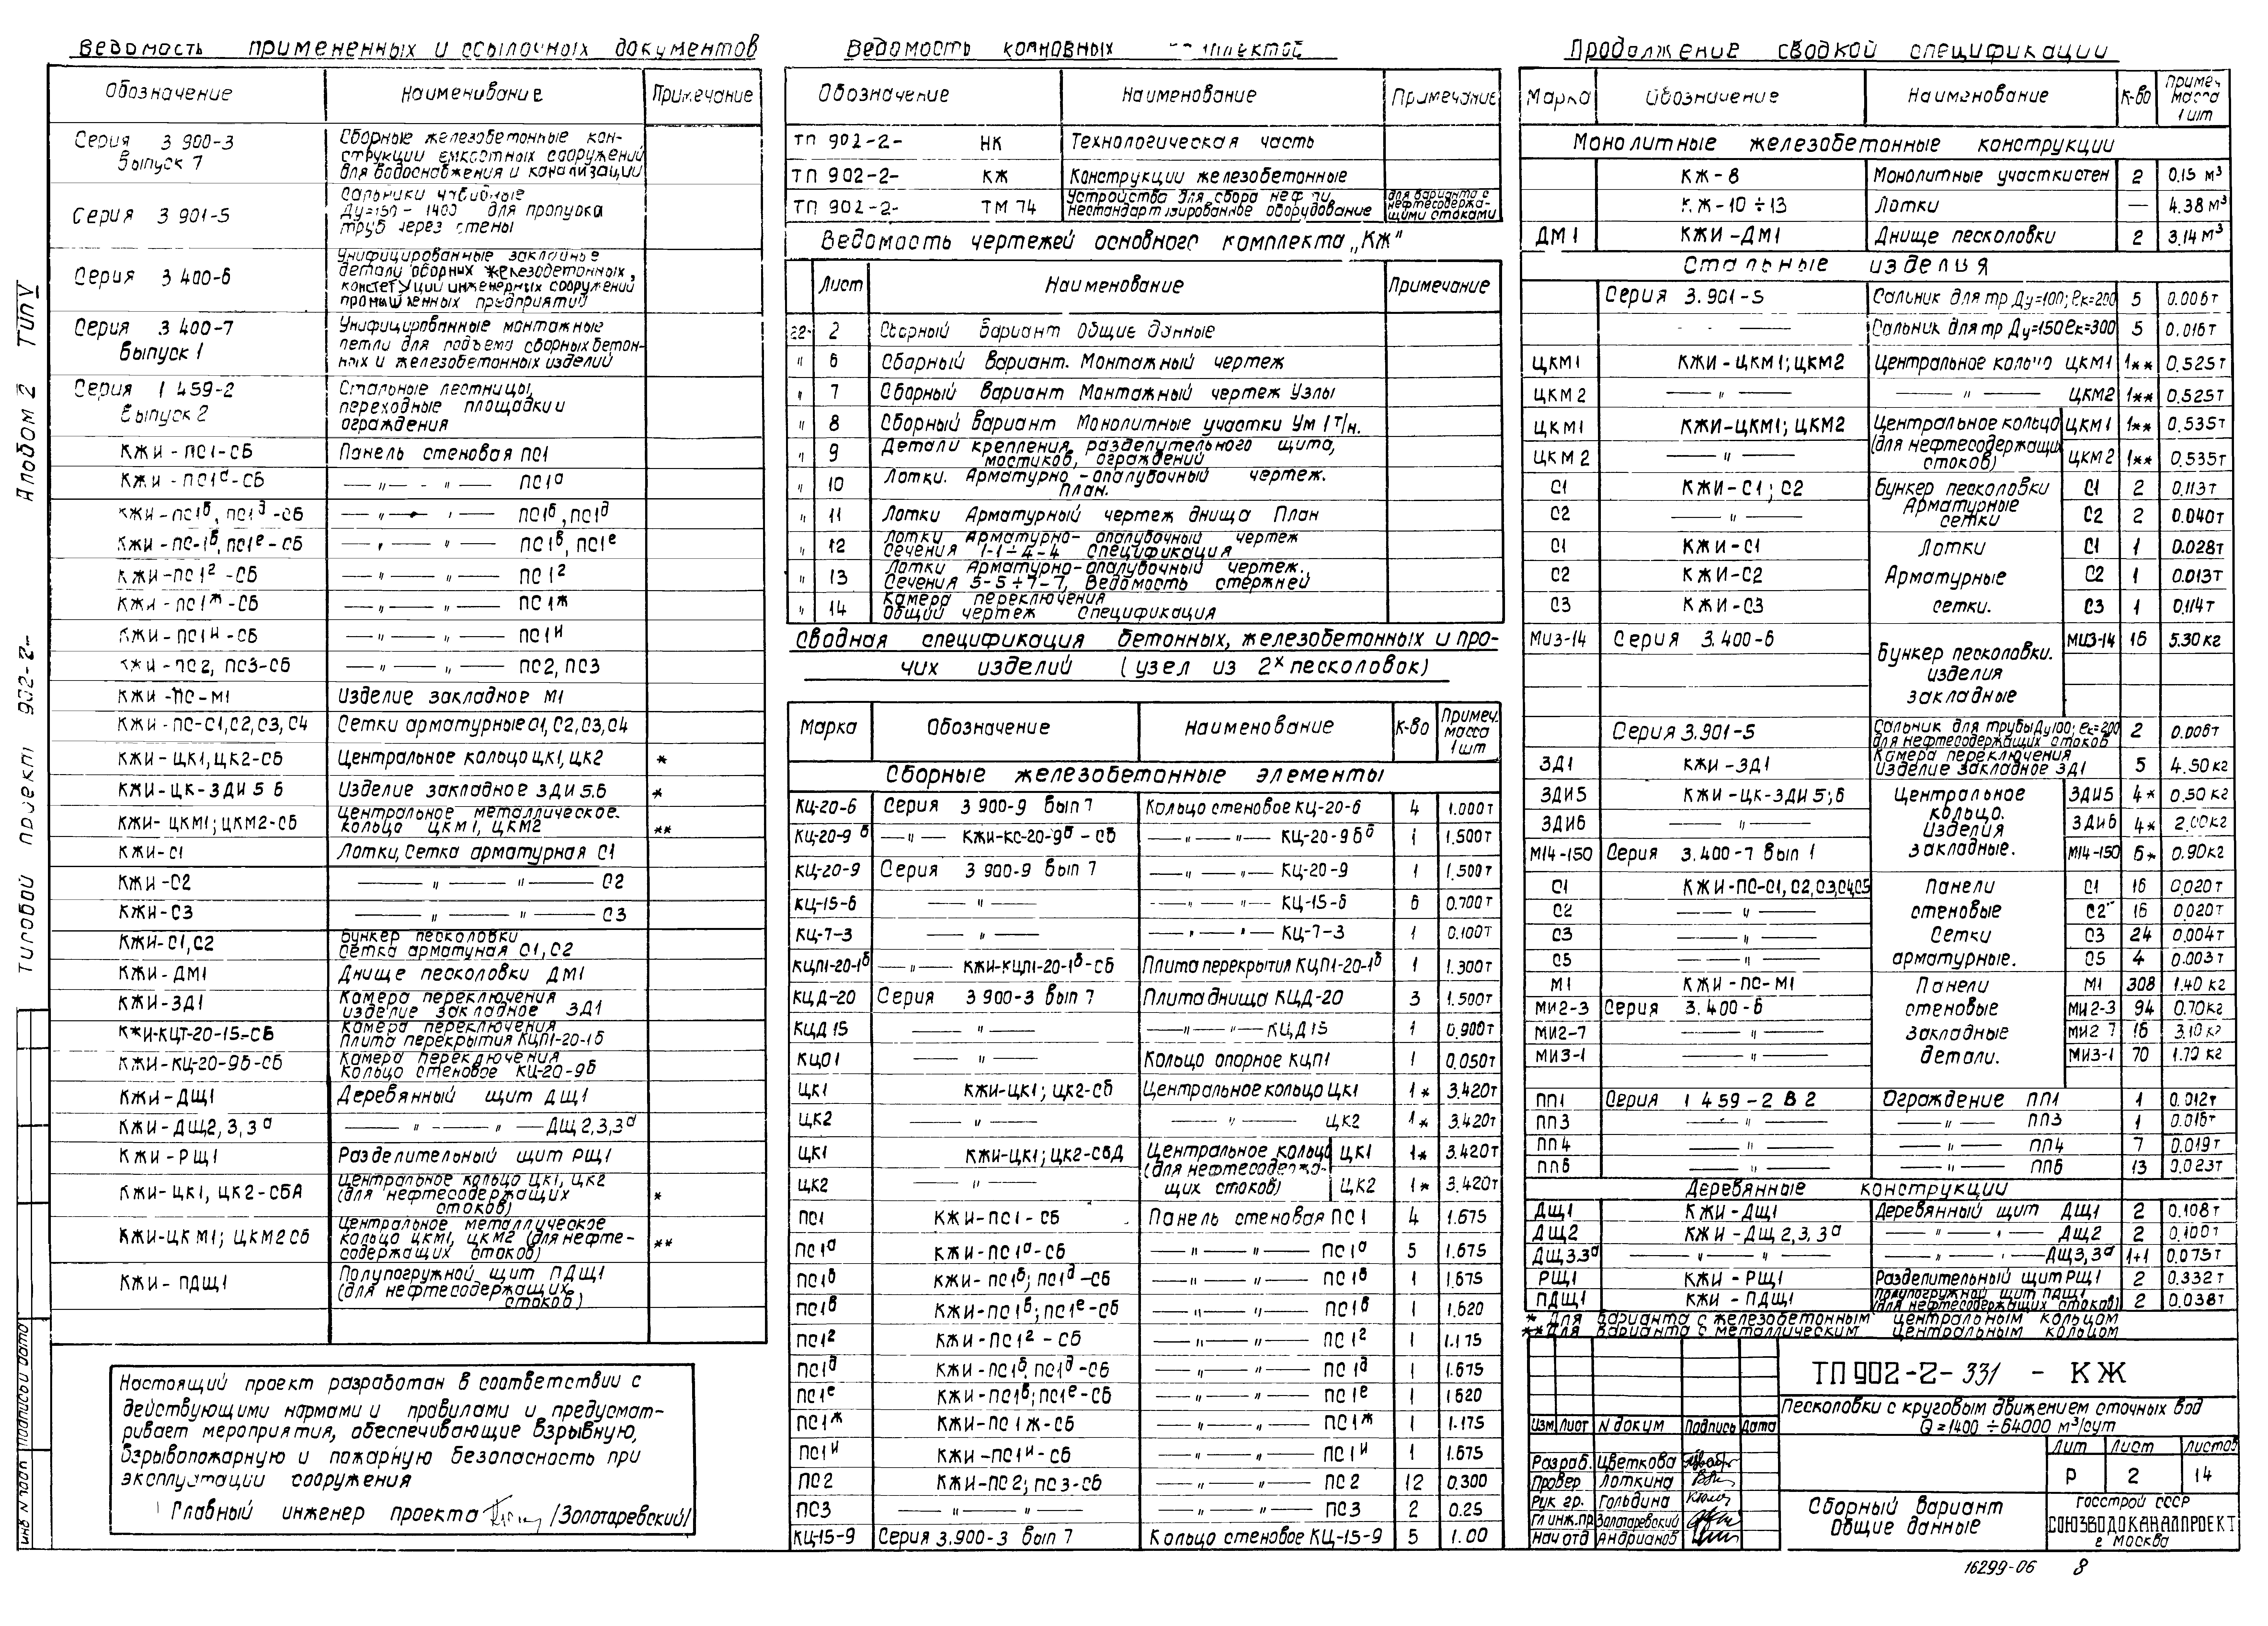 Ведомость примененных и ссылочных документов
Обозначение Наименивание Примечание
Серия 3 900-3 Сборные железобетонные кон-
Выпуск 7 струкции емкостных сооружений
для водоснабжения и канализации
Серия 3 901-5 Сальники
Ду=150 - 1400 для пропуска
труб через стены
Серия 3 400-6 Унифицированные закладные
детали сборных железобетонных,
инженерных сооружений
промышленных предприятий
Серия 3 400-7 Унифицированные монтажные
Выпуск 1 петли для подъема сборных бетон-
ных и железобетонных изделий
Серия 1 459-2 Стальные лестницы,
Выпуск 2 переходные площадки и
ограждения
КЖИ-ПС1-СБ Панель стеновая ПС1
КЖИ-ПС1а-СБ —〃—〃— ПС1а
КЖИ-ПС1б, ПС1д-СБ —〃—〃— ПС1б, ПС1д
КЖИ-ПС-1в, ПС1е-СБ —〃—〃— ПС1в, ПС1е
КЖИ-ПС1г-СБ —〃—〃— ПС1г
КЖИ-ПС1ж-СБ —〃—〃— ПС1ж
КЖИ-ПС1и-СБ —〃—〃— ПС1и
КЖИ-ПС2, ПС3-СБ —〃—〃— ПС2, ПС3
КЖИ-ПС-М1 Изделие закладное М1
КЖИ-ПС-С1,С2,С3,С4 Сетки арматурные С1,С2,С3,С4
КЖИ-ЦК1,ЦК2-СБ Центральное кольцо ЦК1, ЦК2 *
КЖИ-ЦК-ЗДИ 5 6 Изделие закладное ЗДИ 5.6 *
КЖИ-ЦКМ1; ЦКМ2-СБ Центральное металлическое
кольцо ЦКМ1, ЦКМ2 **
КЖИ-С1 Лотки, Сетка арматурная С1
КЖИ-С2 —〃—〃— С2
КЖИ-С3 —〃—〃— С3
КЖИ-С1,С2 Бункер песколовки
сетка арматуная С1, С2
КЖИ-ДМ1 Днище песколовки ДМ1
КЖИ-ЗД1 Камера переключения
изделие закладное ЗД1
КЖИ-КЦТ-20-15-СБ Камера переключения
плита перекрытия КЦП1-20-1б
КЖИ-КЦ-20-9б-СБ Камера переключения
кольцо стеновое КЦ-20-9б
КЖИ-ДЩ1 Деревянный щит ДЩ1
КЖИ-ДЩ2,3,3а —〃—〃— ДЩ2,3,3а
КЖИ-РЩ1 Разделительный щит РЩ1
КЖИ-ЦК1, ЦК2-СБА Центральное кольцо ЦК1, ЦК2
(для нефтесодержащих
стоков) *
КЖИ-ЦКМ1; ЦКМ2СБ Центральное металлическое
кольцо ЦКМ1, ЦКМ2 (для нефте-
содержащих стоков) **
КЖИ-ПДЩ1 Полупогружной щит ПДЩ1
(для нефтесодержащих
стоков)
Настоящий проект разработан в соответствии с
действующими нормами и правилами и предусмат-
ривает мероприятия, обеспечивающие взрывную,
взрывопожарную и пожарную безопасность при
эксплуатации сооружения
Главный инженер проекта /Золотаревский/
Ведомость
Обозначение Наименование Примечание
ТП 902-2- НК Технологическая часть
ТП 902-2- КЖ Конструкции железобетонные
ТП 902-2- ТМ 74 Устройства для сбора нефти для варианта с
нестандартизированное оборудование нефтесодержа-
щими стоками
Ведомость чертежей основного комплекта „КЖ"
Лист Наименование Примечание
2 Сборный вариант Общие данные
〃 6 Сборный вариант. Монтажный чертеж
〃 7 Сборный вариант Монтажный чертеж Узлы
〃 8 Сборный вариант Монолитные участки Ум 1 т/н.
〃 9 Детали крепления разделительного щита,
мостиков, ограждений
〃 10 Лотки. Арматурно-опалубочный чертеж.
План.
〃 11 Лотки Арматурный чертеж днища План
〃 12 Лотки Арматурно-опалубочный чертеж
сечения 1-1÷4-4 Спецификация
〃 13 Лотки Арматурно-опалубочный чертеж.
Сечения 5-5÷7-7, Ведомость стержней
〃 14 Камера переключения
Общий чертеж Спецификация
Сводная спецификация бетонных, железобетонных и про-
чих изделий (узел из 2х песколовок)
Марка Обозначение Наименование К-во Примеч. масса 1шт
Сборные железобетонные элементы
КЦ-20-6 Серия 3 900-9 Вып 7 Кольцо стеновое КЦ-20-6 4 1.000т
КЦ-20-9б —〃— КЖИ-КС-20-9б-СБ —〃—〃— КЦ-20-9б 1 1.500т
КЦ-20-9 Серия 3 900-9 Вып 7 —〃—〃— КЦ-20-9 1 1.500т
КЦ-15-6 —〃— —〃—〃— КЦ-15-6 6 0.700т
КЦ-7-3 —〃— —〃—〃— КЦ-7-3 1 0.100т
КЦП1-20-1б —〃— КЖИ-КЦП1-20-1б-СБ Плита перекрытия КЦП1-20-1б 1 1.300т
КЦД-20 Серия 3 900-3 Вып 7 Плита днища КЦД-20 3 1.500т
КЦД 15 —〃— —〃—〃— КЦД 15 1 0.900т
КЦО1 —〃— Кольцо опорное КЦП1 1 0.050т
ЦК1 КЖИ-ЦК1; ЦК2-СБ Центральное кольцо ЦК1 1* 3.420т
ЦК2 —〃— —〃— ЦК2 1* 3.420т
ЦК1 КЖИ-ЦК1; ЦК2-СБД Центральное кольцо ЦК1 1* 3.420т
(для нефтесодержа-
ЦК2 —〃— щих стоков) ЦК2 1* 3.420т
ПС1 КЖИ-ПС1-СБ Панель стеновая ПС1 4 1.675
ПС1а КЖИ-ПС1а-СБ —〃—〃— ПС1а 5 1.675
ПС1б КЖИ-ПС1б; ПС1д-СБ —〃—〃— ПС1б 1 1.675
ПС1в КЖИ-ПС1в; ПС1е-СБ —〃—〃— ПС1в 1 1.620
ПС1г КЖИ-ПС1г-СБ —〃—〃— ПС1г 1 1.175
ПС1д КЖИ-ПС1б, ПС1д-СБ —〃—〃— ПС1д 1 1.675
ПС1е КЖИ-ПС1в; ПС1е-СБ —〃—〃— ПС1е 1 1620
ПС1ж КЖИ-ПС1ж-СБ —〃—〃— ПС1ж 1 1.175
ПС1и КЖИ-ПС1и-СБ —〃—〃— ПС1и 1 1.675
ПС2 КЖИ-ПС2; ПС3-СБ —〃—〃— ПС2 12 0.300
ПС3 —〃—〃— —〃—〃— ПС3 2 0.25
КЦ-15-9 Серия 3.900-3 Вып 7 Кольцо стеновое КЦ-15-9 5 1.00
Продолжение сводкой спецификации
Марка Обозначение Наименование К-во Примеч масса 1шт
Монолитные железобетонные конструкции
КЖ-8 Монолитные участки стен 2 0.15 м³
КЖ-10÷13 Лотки — 4.38 м³
ДМ1 КЖИ-ДМ1 Днище песколовки 2 3.14 м³
Стальные изделия
Серия 3.901-5 Сальник для тр Ду=100; ℓк=200 5 0.006т
Сальник для тр Ду=150 ℓк=300 5 0.016т
ЦКМ1 КЖИ-ЦКМ1; ЦКМ2 Центральное кольцо ЦКМ1 1** 0.525т
ЦКМ2 —〃— —〃— ЦКМ2 1** 0.525т
ЦКМ1 КЖИ-ЦКМ1; ЦКМ2 Центральное кольцо ЦКМ1 1** 0.535т
(для нефтесодержащих
ЦКМ2 —〃— стоков) ЦКМ2 1** 0.535т
С1 КЖИ-С1; С2 Бункер песколовки С1 2 0.113т
С2 —〃— Арматурные сетки С2 2 0.040т
С1 КЖИ-С1 Лотки С1 1 0.028т
С2 КЖИ-С2 Арматурные С2 1 0.013т
С3 КЖИ-С3 сетки. С3 1 0.114т
МИЗ-14 Серия 3.400-6 МИЗ-14 16 5.30 кг
Бункер песколовки.
изделия
закладные
Серия 3.901-5 Сальник для трубы Ду100; ℓк=200 2 0.006т
для нефтесодержащих стоков
ЗД1 КЖИ-ЗД1 Камера переключения 5 4.50 кг
Изделие закладное ЗД1
ЗДИ5 КЖИ-ЦК-ЗДИ 5; 6 Центральное ЗДИ5 4* 0.50 кг
кольцо.
ЗДИ6 —〃— Изделия ЗДИ6 4* 2.00кг
М14-150 Серия 3.400-7 Вып 1 закладные. М14-150 6* 0.90кг
С1 КЖИ-ПС-С1,С2,С3,С4,С5 Панели С1 16 0.020т
С2 —〃— стеновые С2 16 0.020т
С3 —〃— Сетки С3 24 0.004т
С5 —〃— арматурные. С5 4 0.003т
М1 КЖИ-ПС-М1 Панели М1 308 1.40 кг
МИ2-3 Серия 3.400-6 стеновые МИ2-3 94 0.70кг
МИ2-7 —〃— закладные МИ2 7 16 3.10 кг
МИЗ-1 —〃— детали. МИЗ-1 70 1.70 кг
ПП1 Серия 1 459-2 В 2 Ограждение ПП1 1 0.012т
ПП3 —〃— —〃— ПП3 1 0.016т
ПП4 —〃— —〃— ПП4 7 0.019т
ПП6 —〃— —〃— ПП6 13 0.023т
Деревянные конструкции
ДЩ1 КЖИ-ДЩ1 Деревянный щит ДЩ1 2 0.108т
ДЩ2 КЖИ-ДЩ2,3,3а —〃—〃— ДЩ2 2 0.100т
ДЩ3,3а —〃—〃— —〃—〃— ДЩ3,3а 1+1 0.075т
РЩ1 КЖИ-РЩ1 Разделительный щит РЩ1 2 0.332т
ПДЩ1 КЖИ-ПДЩ1 Полупогружной щит ПДЩ1 2 0.038т
(для нефтесодержащих стоков)
* Для варианта с железобетонным центральным кольцом
** Для варианта с металлическим центральным кольцом
ТП 902-2-331 - КЖ
Песколовки с круговым движением сточных вод
Q=1400÷64000 м³/сут
Изм Лист N докум Подпись Дата
Лит Лист Листов
Р 2 14
Разраб. Цветкова
Провер Лоткина
Рук гр. Гольдина
Гл инж.пр Золотаревский
Нач отд Андрианов
Сборный вариант
Общие данные
ГОССТРОЙ СССР
СОЮЗВОДОКАНАЛПРОЕКТ
г Москва
16299-06 8
Типовой проект 902-2- Альбом 2 Тип V
Инв N подл Подпись и дата